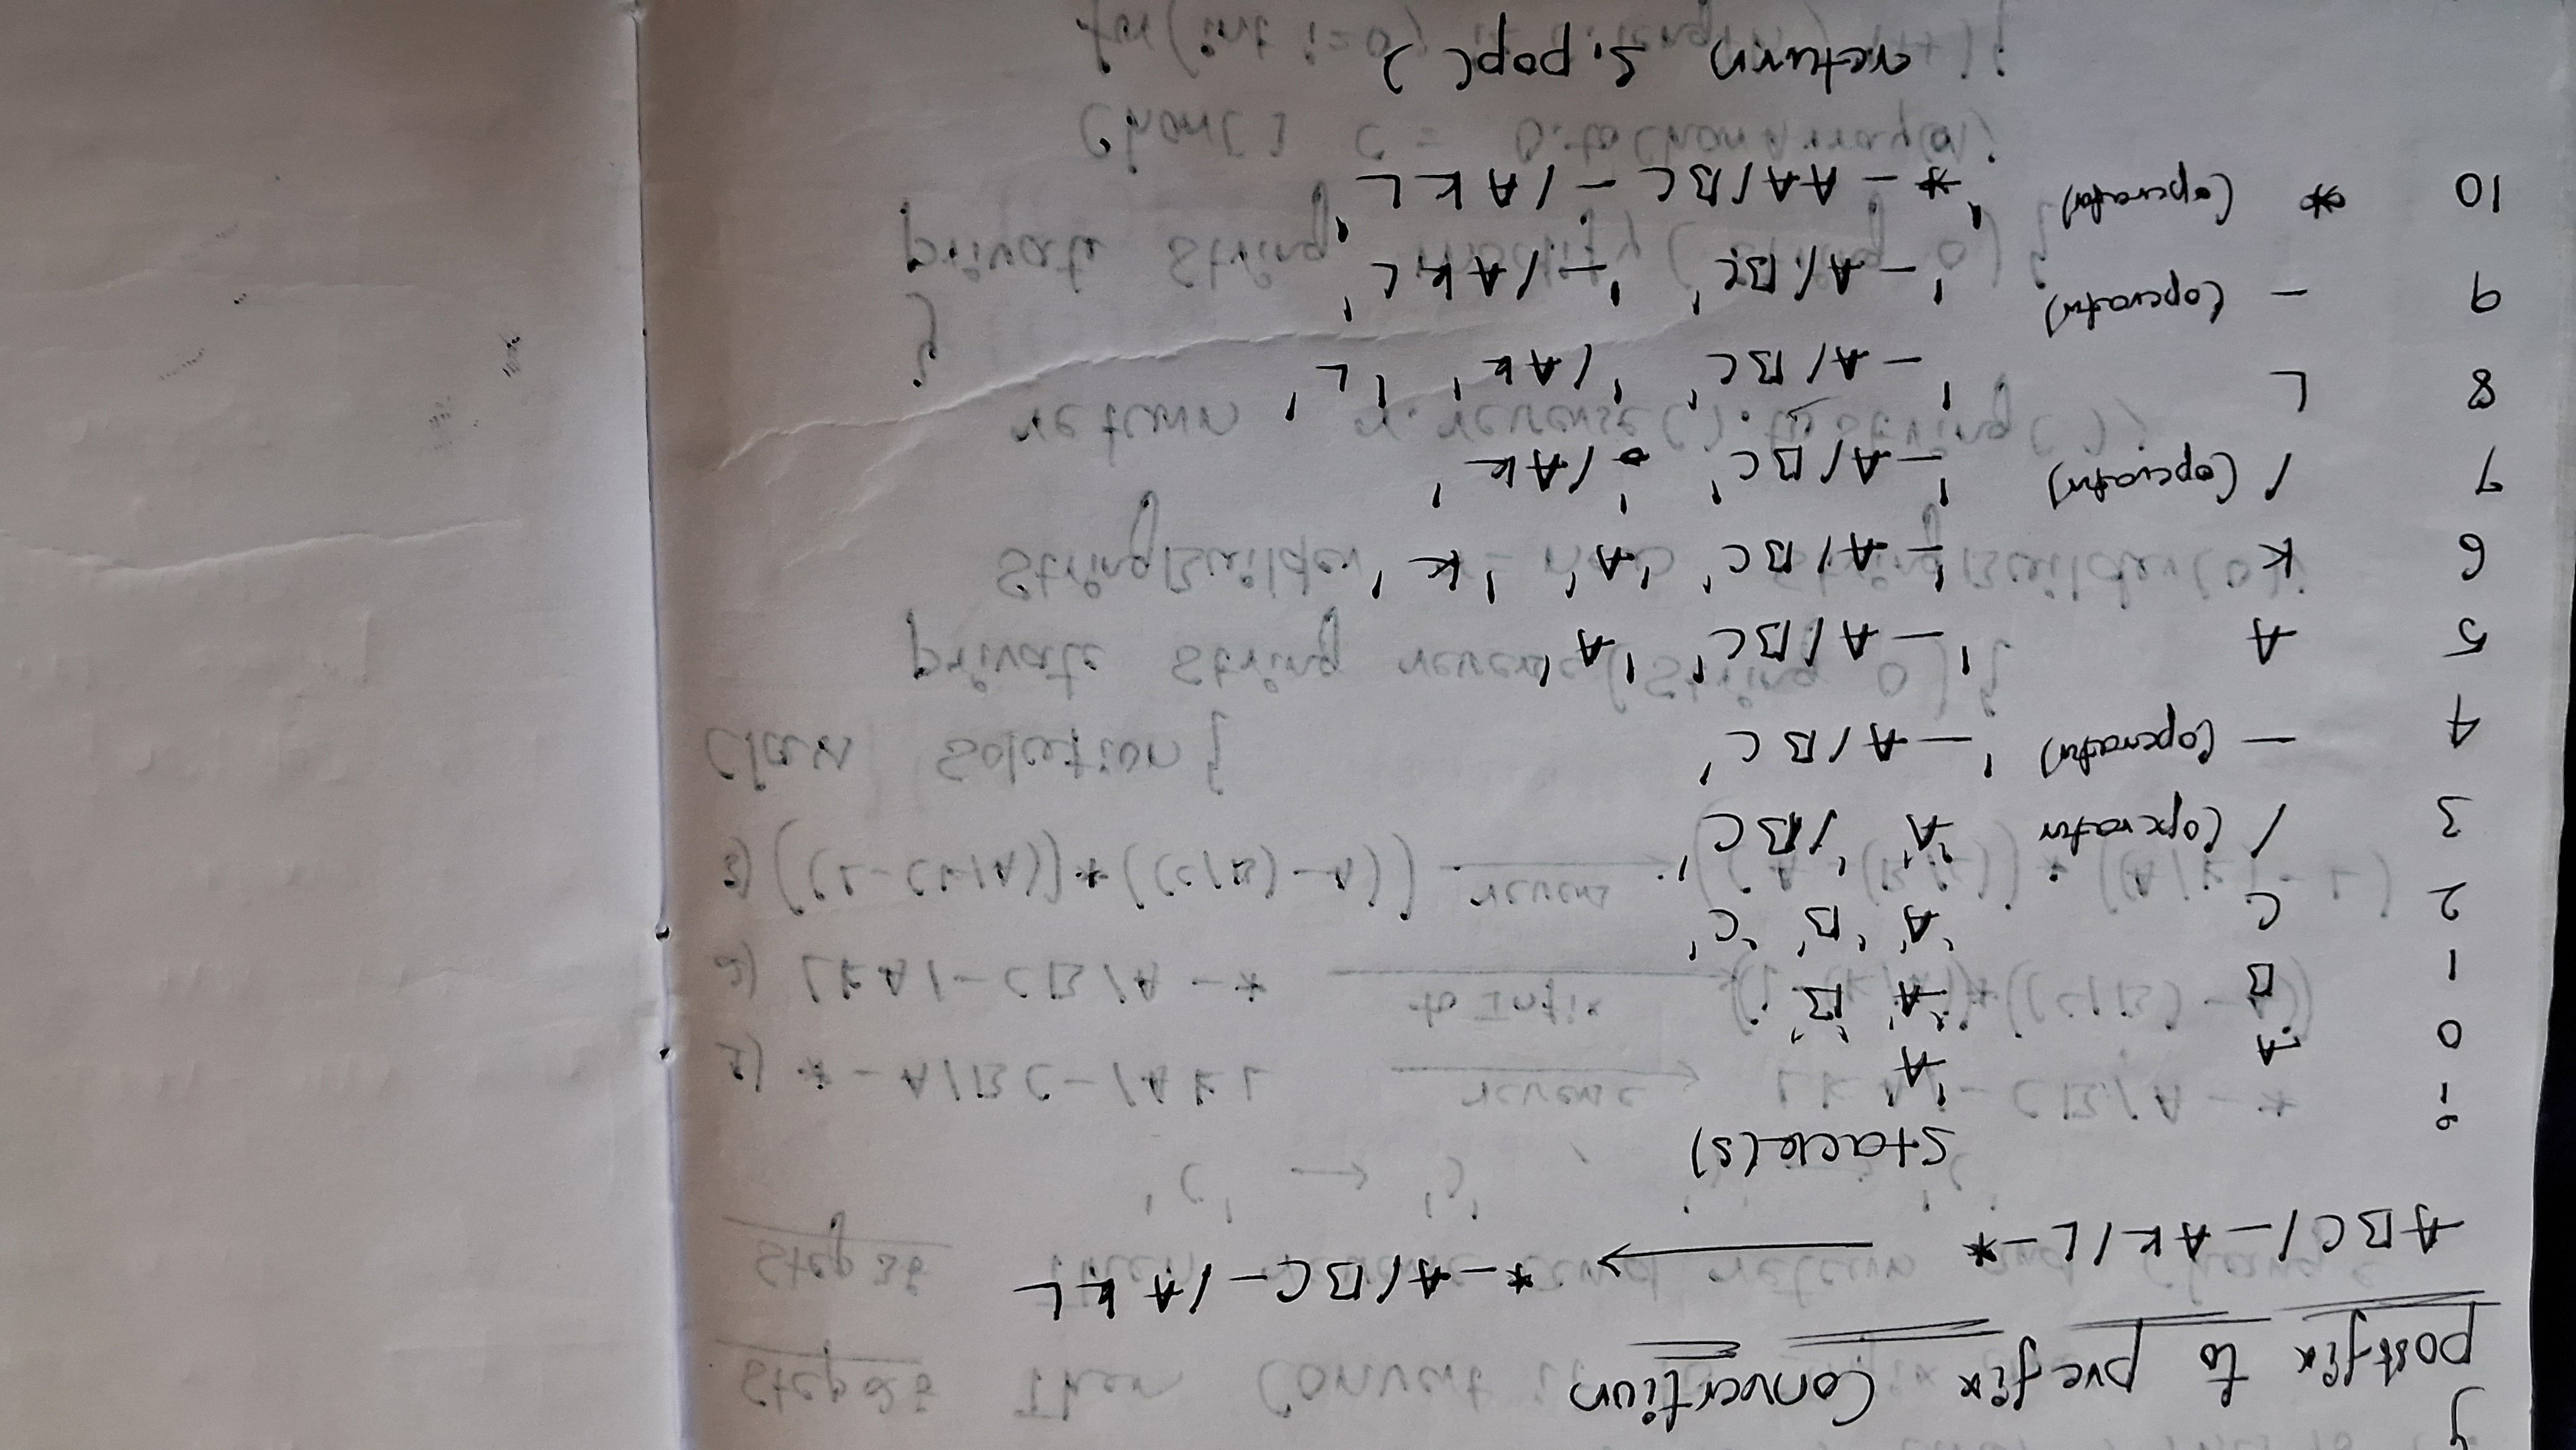 postfix to prefix Convertion
ABC/-AK/L-* → *-A/BC-/AKL
i Stack(s)
0 A 'A'
1 B 'A' 'B'
2 C 'A' 'B' 'C'
3 / (operator 'A' '/BC'
4 - (operator) '-A/BC'
5 A '-A/BC' 'A'
6 K '-A/BC' 'A' 'K'
7 / (operator) '-A/BC' '/AK'
8 L '-A/BC' '/AK' 'L'
9 - (operator) '-A/BC' '-/AKL'
10 * (operator) '*-AA/BC-/AKL'
return s.pop()